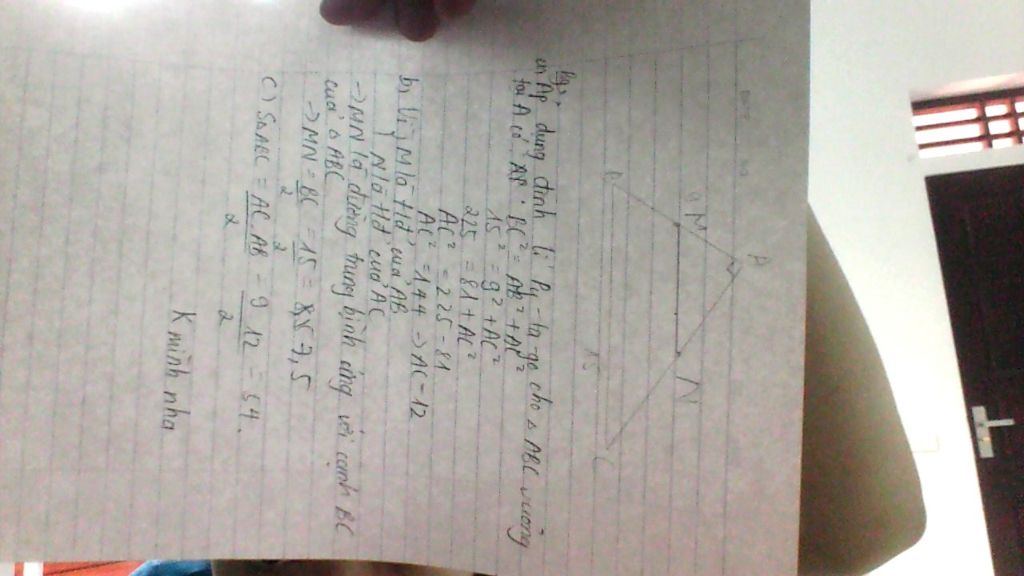 A
M
N
B
C
15
a, Áp dụng định lí Py-ta-go cho △ ABC vuông
tại A có BC² = AB² + AC²
15² = 9² + AC²
225 = 81 + AC²
AC² = 225 - 81
AC² = 144 → AC = 12
b, Vì M là tđ của AB
N là tđ của AC
→ MN là đường trung bình ứng với cạnh BC
của △ ABC
→ MN = BC/2 = 15/2 = 7,5
c) S△ABC = AC.AB/2 = 9.12/2 = 54.
K mình nha